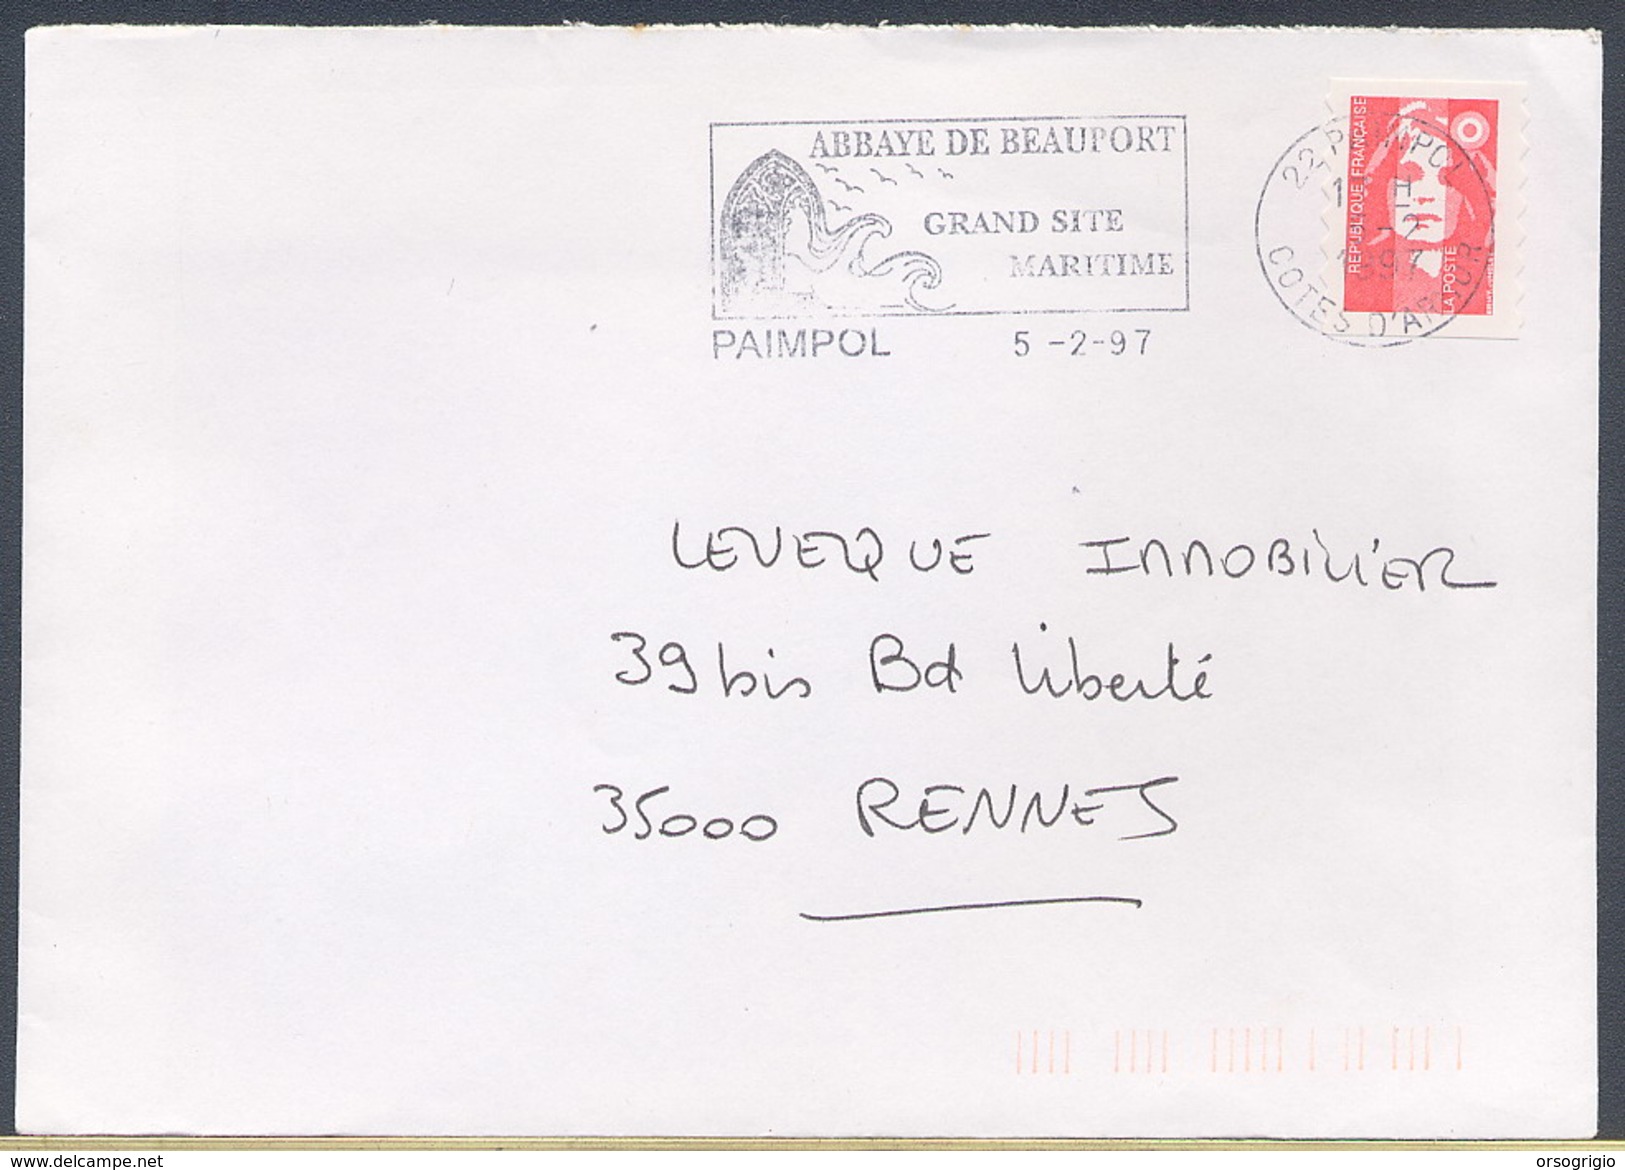 ABBAYE DE BEAUPORT
GRAND SITE
MARITIME
PAIMPOL 5 -2-97
22 PAIMPOL
H
-2
1997
COTES D'ARMOR
REPUBLIQUE FRANÇAISE
LA POSTE
LEVEQUE IMMOBILIER
39 bis Bd Liberté
35000 RENNES
www.delcampe.net
orsogrigio